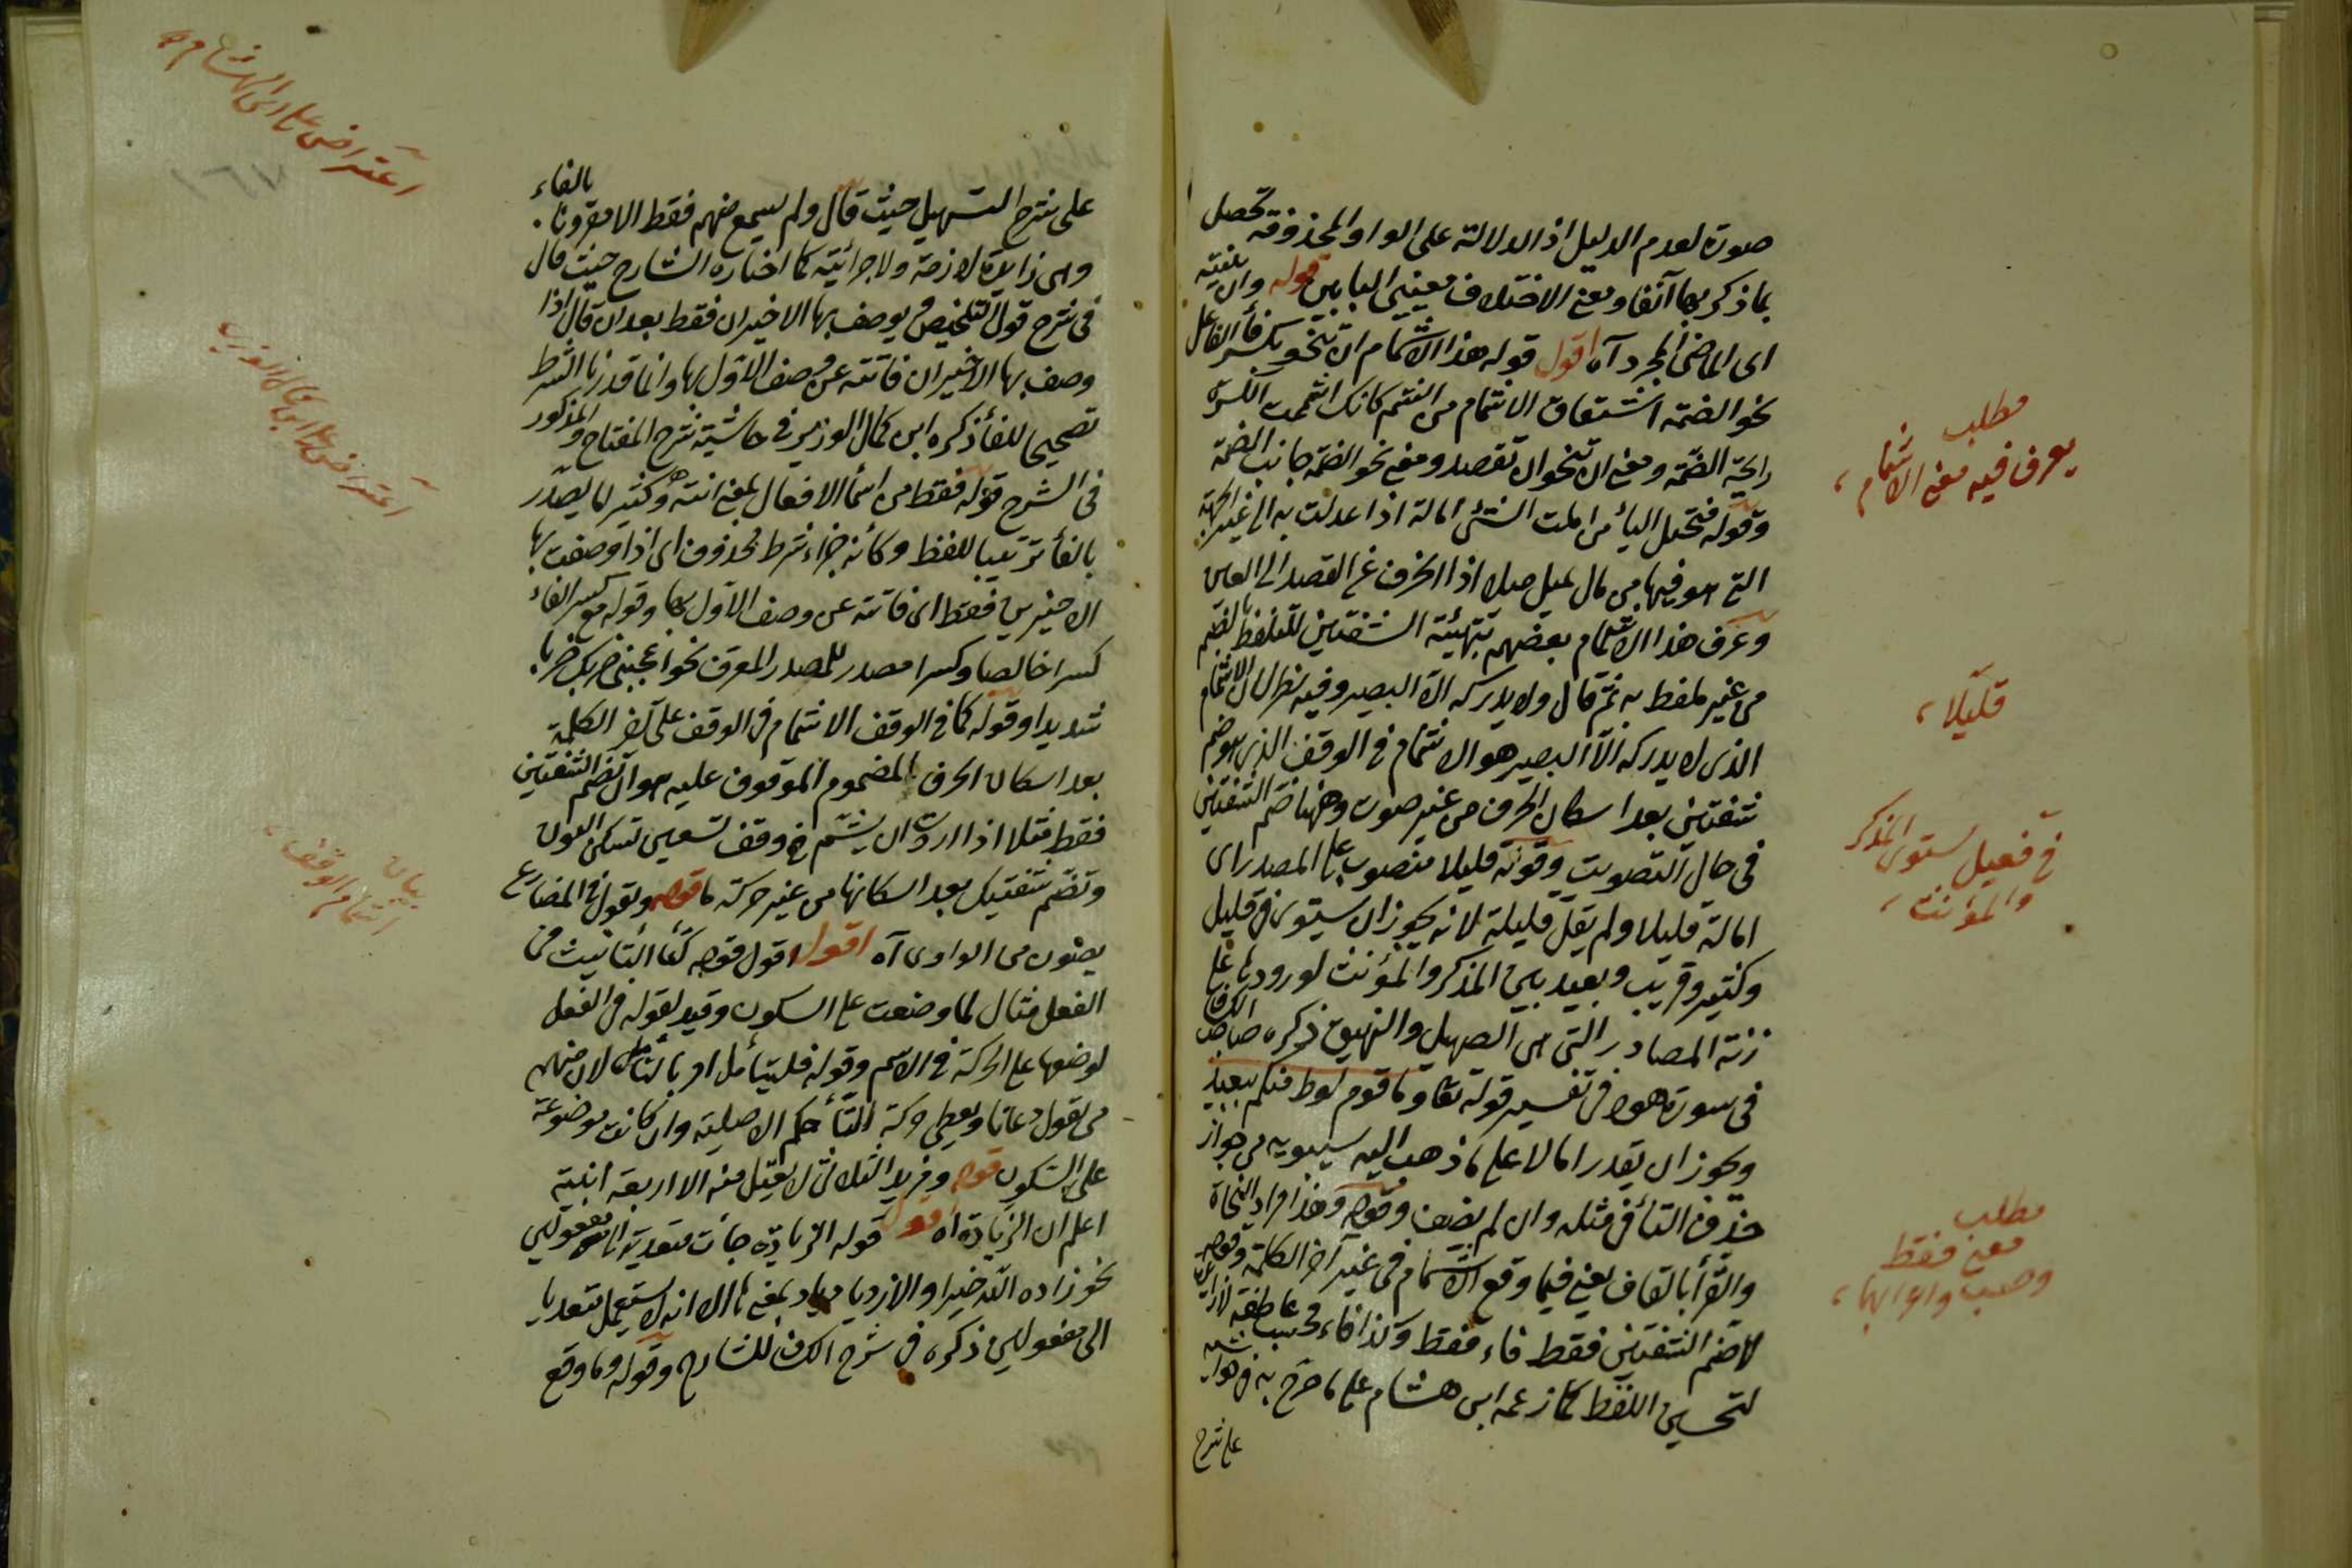 صورة لعدم الدليل اذ الدلالة على الواو المحذوفة تحصل
بما ذكر بها آنفا ومع الاختلاف معينى البابين قوله وان بنيته
اى الماضى المجرد آه اقول قوله هذا الاشمام ان تنحو بكسر فأ الفاعل
نحو الضمة اشتقاق الاشمام من الشم كانك اشممت الكسرة
رايحة الضمة ومعنى ان تنحو ان تقصد ومعنى نحو الضمة جانب الضمة
وقوله فتميل اليأ من املت الشئ امالة اذا عدلت به الى غير الجهة
التى هو فيها من مال يميل ميلا اذا انحرف عن القصد الى
وعرف هذا الاشمام بعضهم بتهيئة الشفتين للتلفظ بالضم
من غير تلفظ به ثم قال ولا يدركه الا البصير وفيه نظر لان الاشمام
الذى لا يدركه الا البصير هو الاشمام فى الوقف الذى هو ضم
شفتين بعد اسكان الحرف من غير صوت وههنا ضم الشفتين
فى حال التصويت وقوله قليلا منصوب على المصدر اى
امالة قليلا ولم يقل قليلة لانه يجوز ان يستوى فى قليل
وكثير وقريب وبعيد بين المذكر والمؤنث لورودها على
زنة المصادر التى هى الصهيل والنهيق ذكره صاحب الكشاف
فى سورة هود فى تفسير قوله تعا وما قوم لوط منكم ببعيد
ويجوز ان يقدر امالا على ما ذهب اليه سيبويه من جواز
حذف التأ فى مثله وان لم يضف وقوله وهذا مراد النحاة
والقرأ بالقاف يعنى فيما وقع الاشمام فى غير آخر الكلمة وقوله
لا ضم الشفتين فقط فاء فقط وكذا فاء فحسب عاطفة لا زايدة
لتحسين اللفظ كما زعمه ابن هشام على ما صرح به فى حواشيه
على شرح
مطلب
يعرف فيه معنى الاشمام
قليلا
فى فعيل يستوى المذكر
والمؤنث
مطلب
معنى فقط
وحسب واعرابهما
على شرح التسهيل حيث قال ولم يسمع منهم فقط الا مقرونا بالفاء
وهى زايدة لازمة ولا جزائية كما اختاره الشارح حيث قال
فى شرح قول التلخيص يوصف بها الاخيران فقط بعد ان قال اذا
وصف بها الاخيران فانته عن وصف الاول بها وانما قدرنا الشرط
تصحيحا للفأ ذكره ابن كمال الوزير فى حاشية شرح المفتاح والمذكور
فى الشرح قوله فقط من اسمأ الافعال بمعنى انته وكثير لما يصدر
بالفأ تزيينا للفظ وكأنه جزاء شرط محذوف اى اذا وصفت بها
الاخيرين فقط اى فانته عن وصف الاول بها وقوله مع كسر الفاء
كسرا خالصا وكسرا مصدر للمصدر المعرف نحو اعجبنى ضربك ضربا
شديدا وقوله كما فى الوقف الاشمام فى الوقف على آخر الكلمة
بعد اسكان الحرف المضموم الموقوف عليه هو ان تضم الشفتين
فقط مثلا اذا اردت ان يشم فى وقف نستعين تسكن النون
وتضم شفتيك بعد اسكانها من غير حركة ما قوله وتقول فى المضارع
يصون من الواوى آه اقول اقول قوله كتأ التأنيث فى
الفعل مثال لما وضعت على السكون وقيد لقوله فى الفعل
لوضعها على الحركة فى الاسم وقوله فليتأمل امر بالتأمل لان منهم
من يقول دعاتا ويعطى حركة التأ حكم الاصلية وان كانت موضوعة
على السكون قوله ومزيد الثلاثى لا يعتل منه الا اربعة ابنية
اعلم ان الزيادة آه اقول قوله الزيادة جأت متعدية الى مفعولين
نحو زاده الله خيرا والازدياد بمعناها الا انه لا يستعمل متعديا
الى مفعولين ذكره فى شرح الكشاف للشارح وقوله وما وقع
اعتراض على ابن الهشام
١٦٧
اعتراض على ابن كمال الوزير
بيان
اشمام الوقف